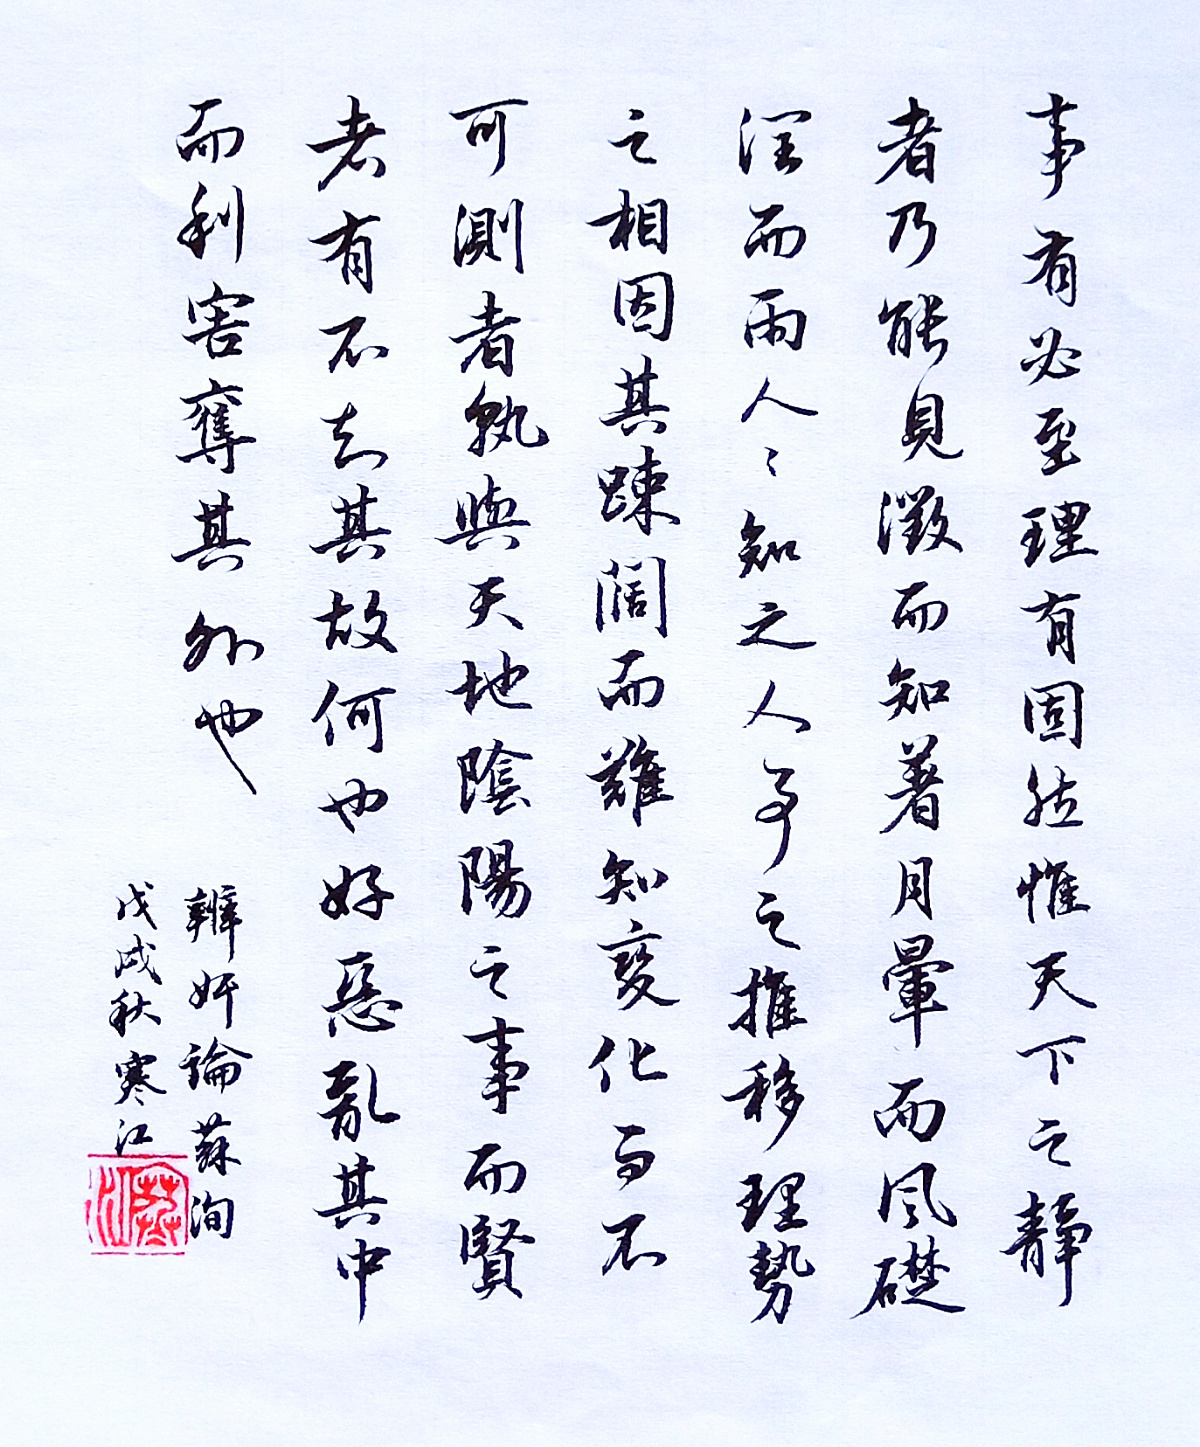 事有必至理有固然惟天下之静
者乃能見微而知著月暈而风礎
润而雨人〻知之人事之推移理勢
之相因其踈阔而難知变化而不
可測者孰與天地陰陽之事而賢
者有不知其故何也好惡亂其中
而利害奪其外也
辨奸論蘇洵
戊戌秋寒江
寒江